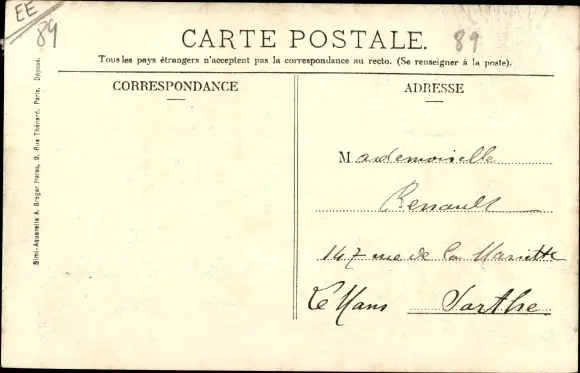 EE
89
CARTE POSTALE.
89
Tous les pays étrangers n'acceptent pas la correspondance au recto. (Se renseigner à la poste).
CORRESPONDANCE
ADRESSE
Mademoiselle
Renault
147 rue de la Mariette
Le Mans Sarthe
Simi-Aquarelle A. Breger frères, 9, Rue Thénard, Paris. Déposé.